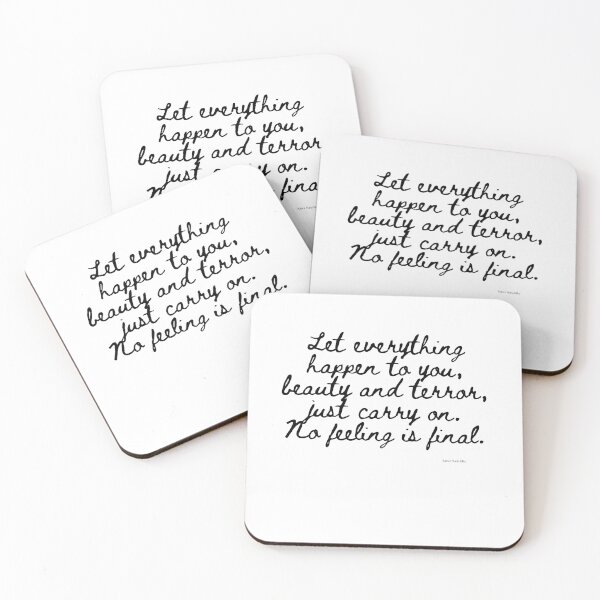 Let everything
happen to you,
beauty and terror
just carry on.
No feeling is fina
Let everything
happen to you,
beauty and terror,
just carry on.
No feeling is final.
Let everything
happen to you,
beauty and terror,
just carry on.
No feeling is final.
Let everything
happen to you,
beauty and terror,
just carry on.
No feeling is final.